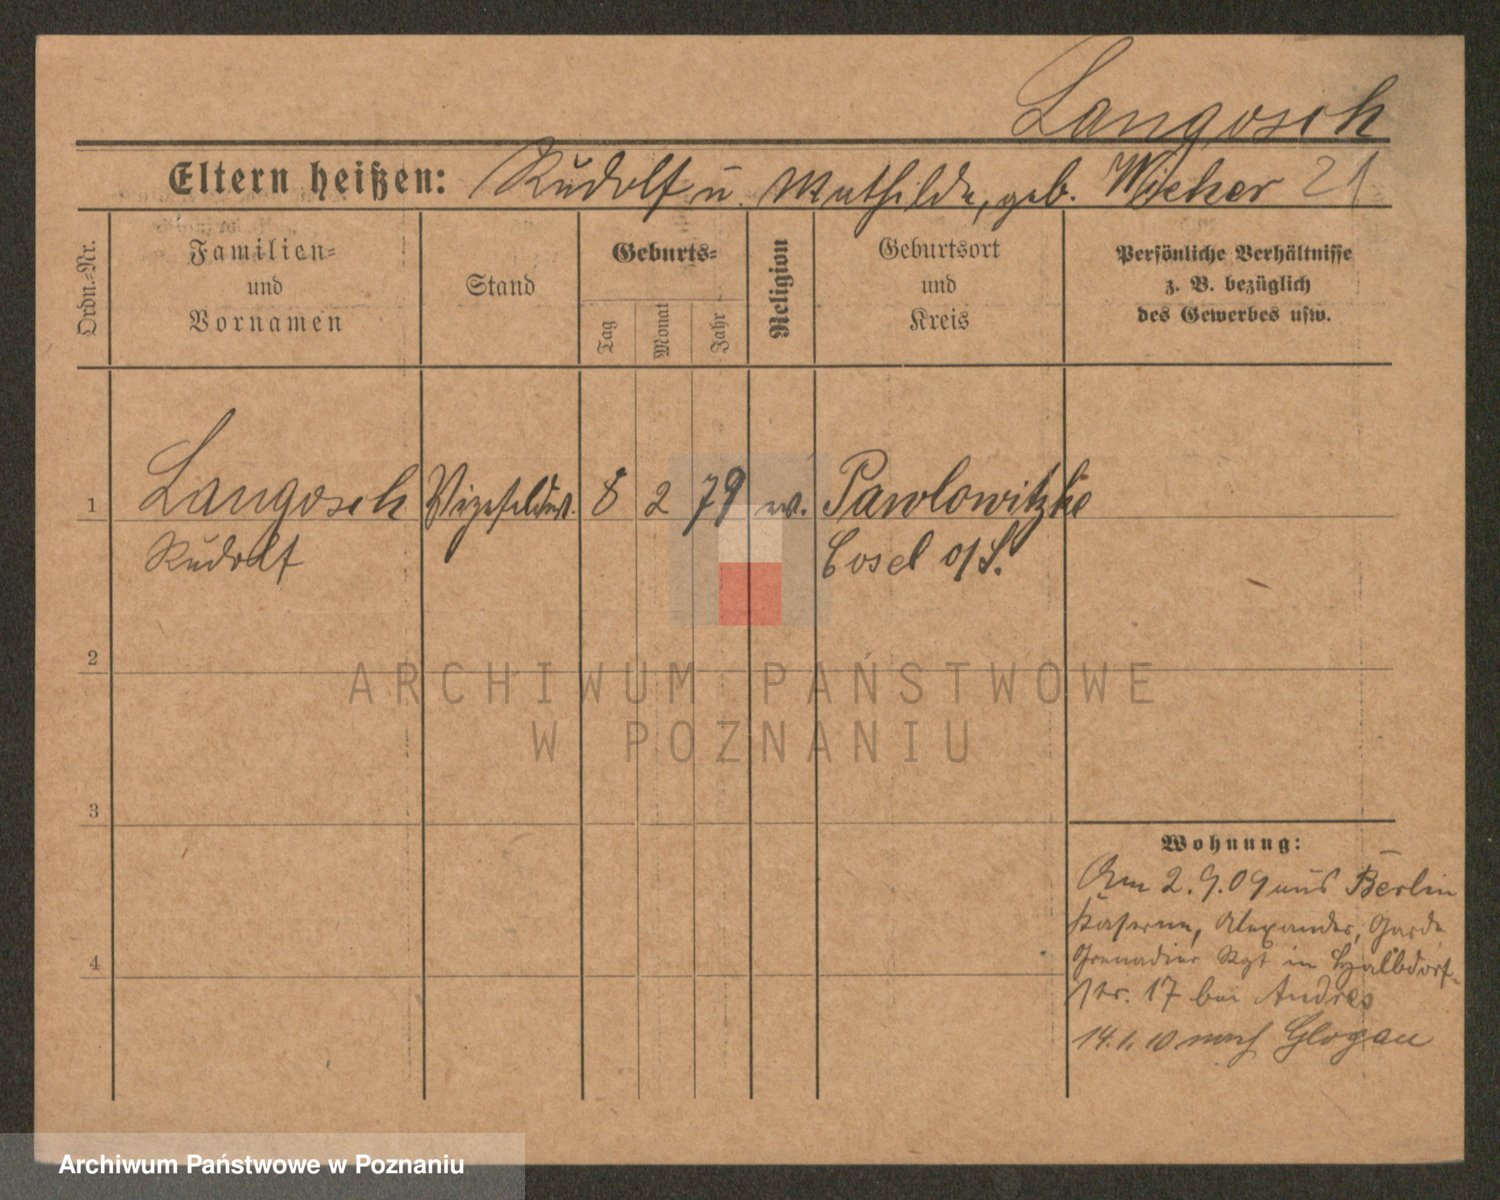 Langosch
Eltern heißen: Rudolf u. Mathilde, geb. Wicher 21
Ordn.-Nr.
Familien-
und
Vornamen
Stand
Geburts-
Tag
Monat
Jahr
Religion
Geburtsort
und
Kreis
Persönliche Verhältnisse
z. B. bezüglich
des Gewerbes usw.
1 Langosch Vizefeldw. 8 2 79 ev. Pawlowitzke
Rudolf Cosel o/S.
2
ARCHIWUM PAŃSTWOWE
W POZNANIU
3
Wohnung:
Am 2.9.09 aus Berlin
Kaserne, Alexander, Garde
4
Grenadier Rgt in Halbdorf-
str. 17 bei Andres
14.1.10 nach Glogau
Archiwum Państwowe w Poznaniu